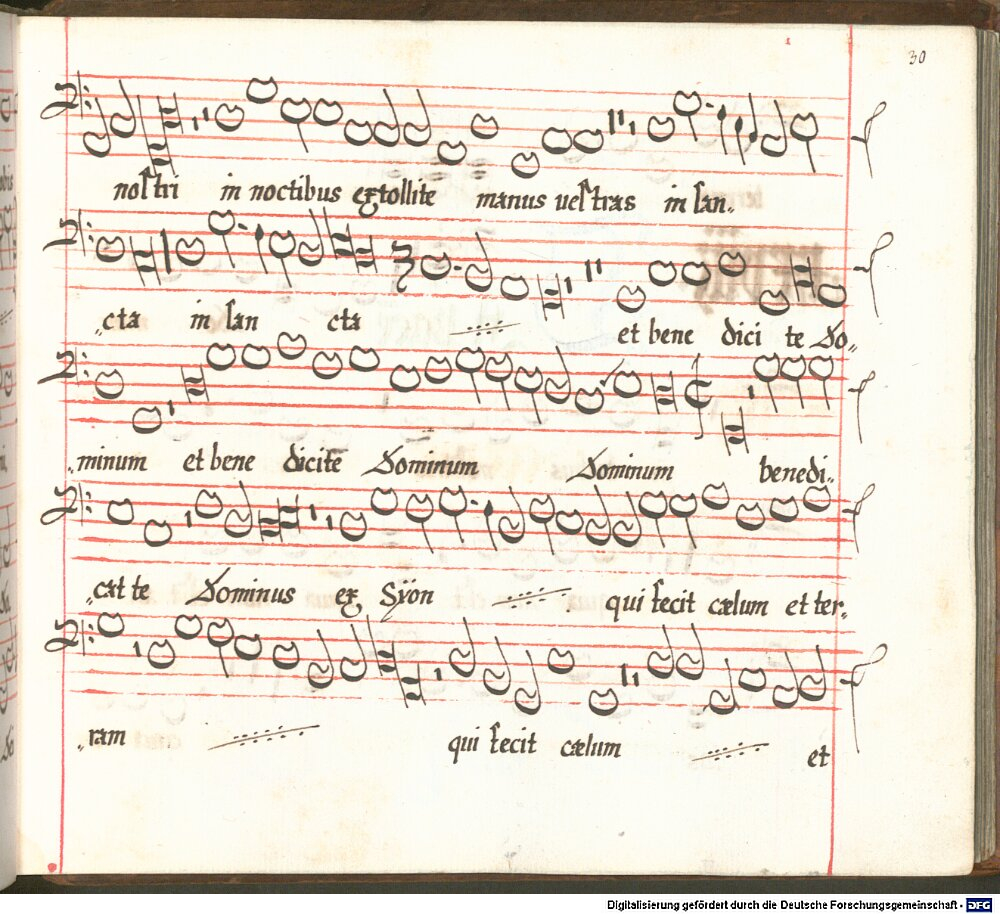 30
nostri in noctibus extollite manus uestras in san„
„cta in san cta et bene dici te Do„
„minum et bene dicite Dominum Dominum benedi„
„cat te Dominus ex Sÿon qui fecit cælum et ter„
„ram qui fecit cælum et
Digitalisierung gefördert durch die Deutsche Forschungsgemeinschaft - DFG